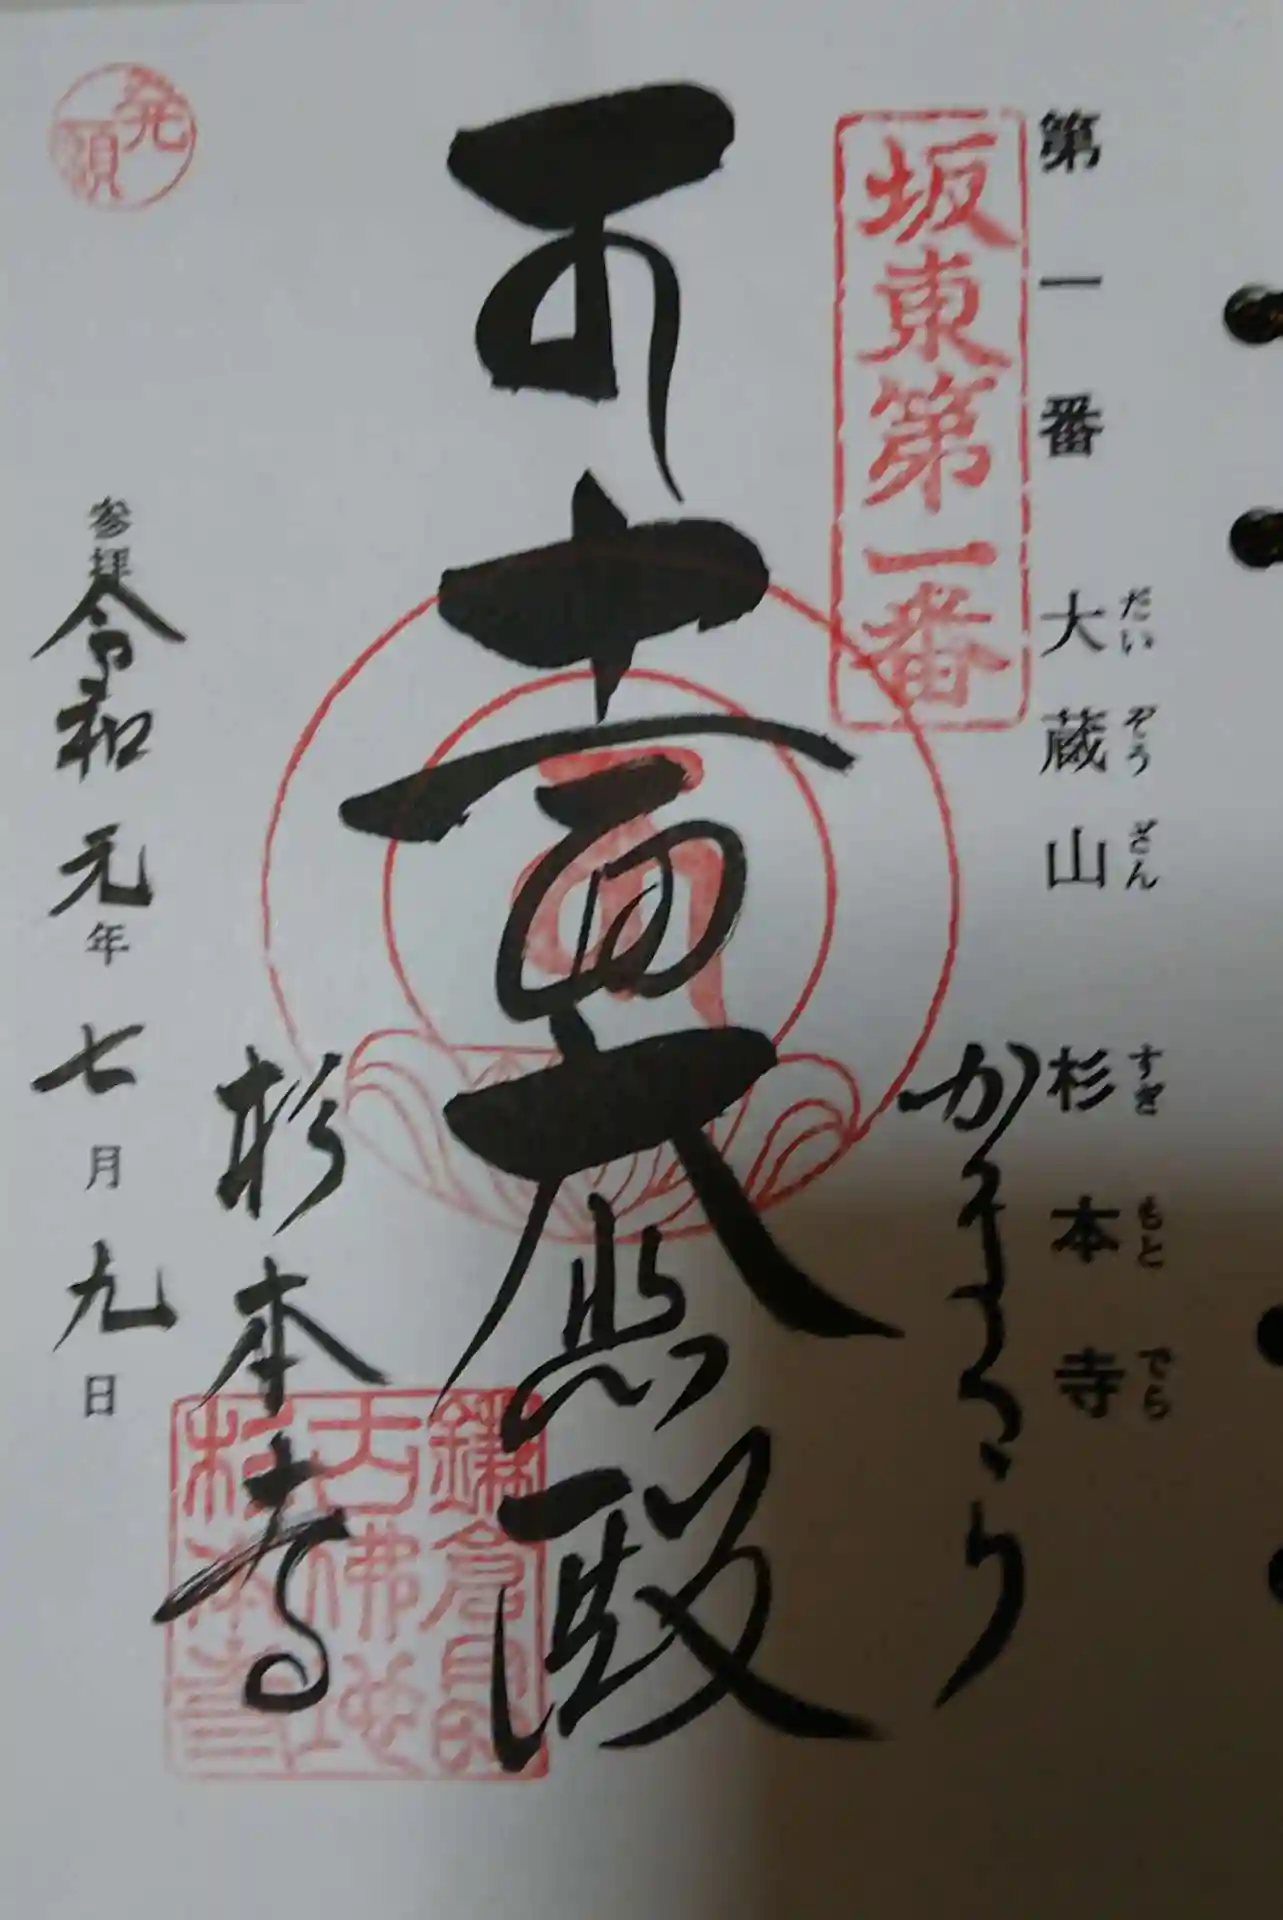 第一番 大蔵山 杉本寺
だいぞうざん すぎもとでら
坂東第一番
かまくら
十一面大悲殿
杉本寺
参拝 令和元年七月九日
発願